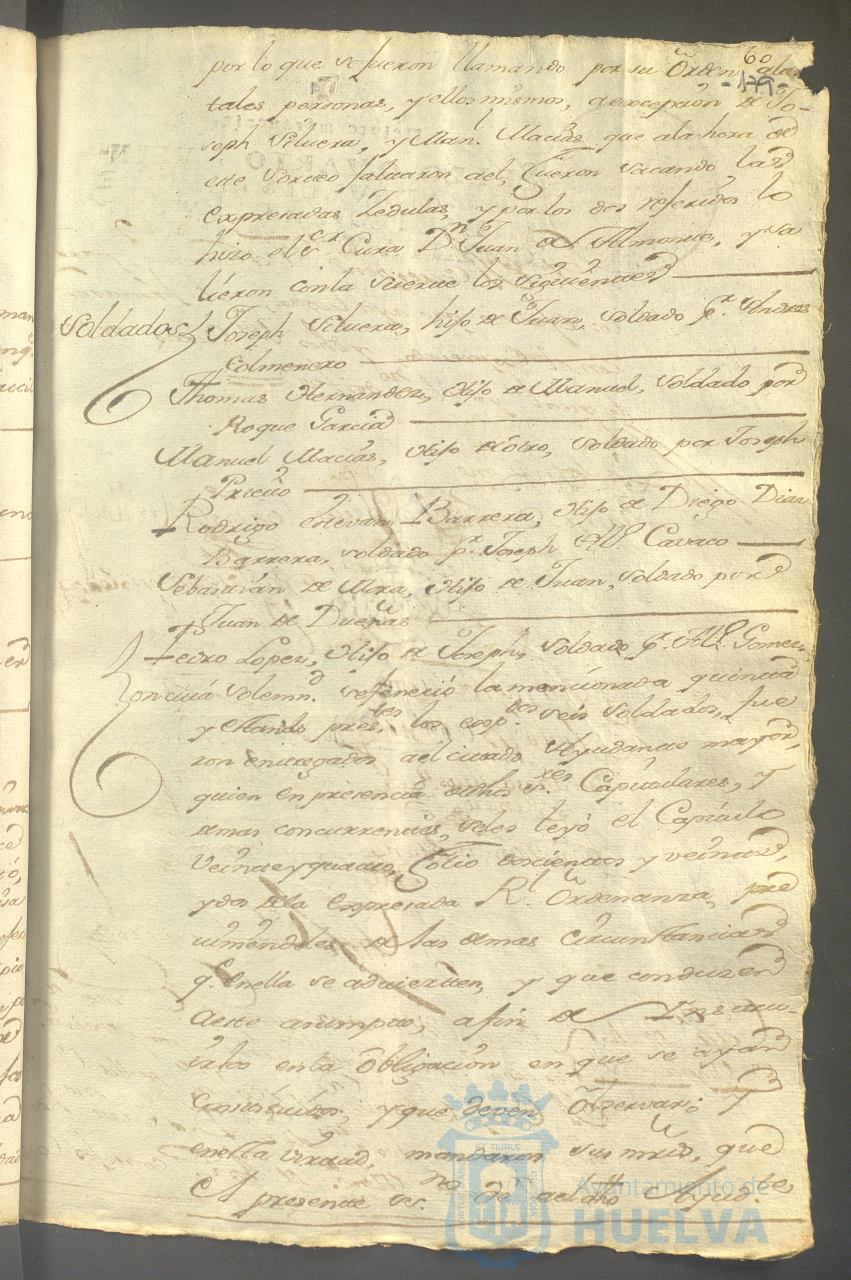 60
-179-
por lo que se fueron llamando por su Orden alas
tales personas, y ellos mismos, a excepcion de Jo-
seph Silvera, y Man.l Macias que ala hora de
este Sorteo faltaron de el, fueron sacando las
expresadas Zedulas, y por los dos referidos lo
hizo el S.r Cura D.n Juan de Almonte, y sa
lieron con la suerte los siguientes
Soldados
Joseph Silvera, hijo de Juan, soldado p.r Andres
Colmenero
Thomas Hernandez, hijo de Manuel, soldado por
Roque Garcia
Manuel Macias, hijo de otro, soldado por Joseph
Prieto
Rodrigo Estevan Barrera, hijo de Diego Diaz
Barrera, soldado p.r Joseph Al.o Cavaco
Sebastian de Mora, hijo de Juan, soldado por
Juan de Dueñas
Pedro Lopez, hijo de Joseph, soldado p.r Al.o Gomez
Con cuia solemn.d se feneció la mencionada quinta
y estando pres.tes los esp.dos seis soldados, fue
ron entregados al citado Ayudante mayor,
quien en presencia de dhos S.res Capitulares, y
demas concurrentes, seles leyó el Capitulo
Veinte y quatro, folio doscientos y veinte
y dos dela expresada R.l Ordenanza, pre
viniendoles de las demas Circunstancias
q.e en ella se advierten, y que conducen
aeste asumpto, afin de Instru-
irlos enla Obligacion en que se ayan
Constituidos, y que deven Observar; Y
en esta virtud, mandaron sus mrds, que
el presente es.no de el dho Ayud.te
Ayuntamiento de
HUELVA